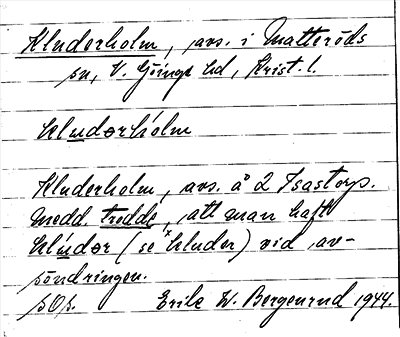 Kluderholm, avs. i Matteröds
sn, V. Göinge hd, Krist. l.
kludərhólm
Kluderholm, avs. å 2 Isastorp.
Medd. trodde, att man haft
klúdər (se kluder) vid av-
söndringen.
Erik W. Bergenrud 1944.